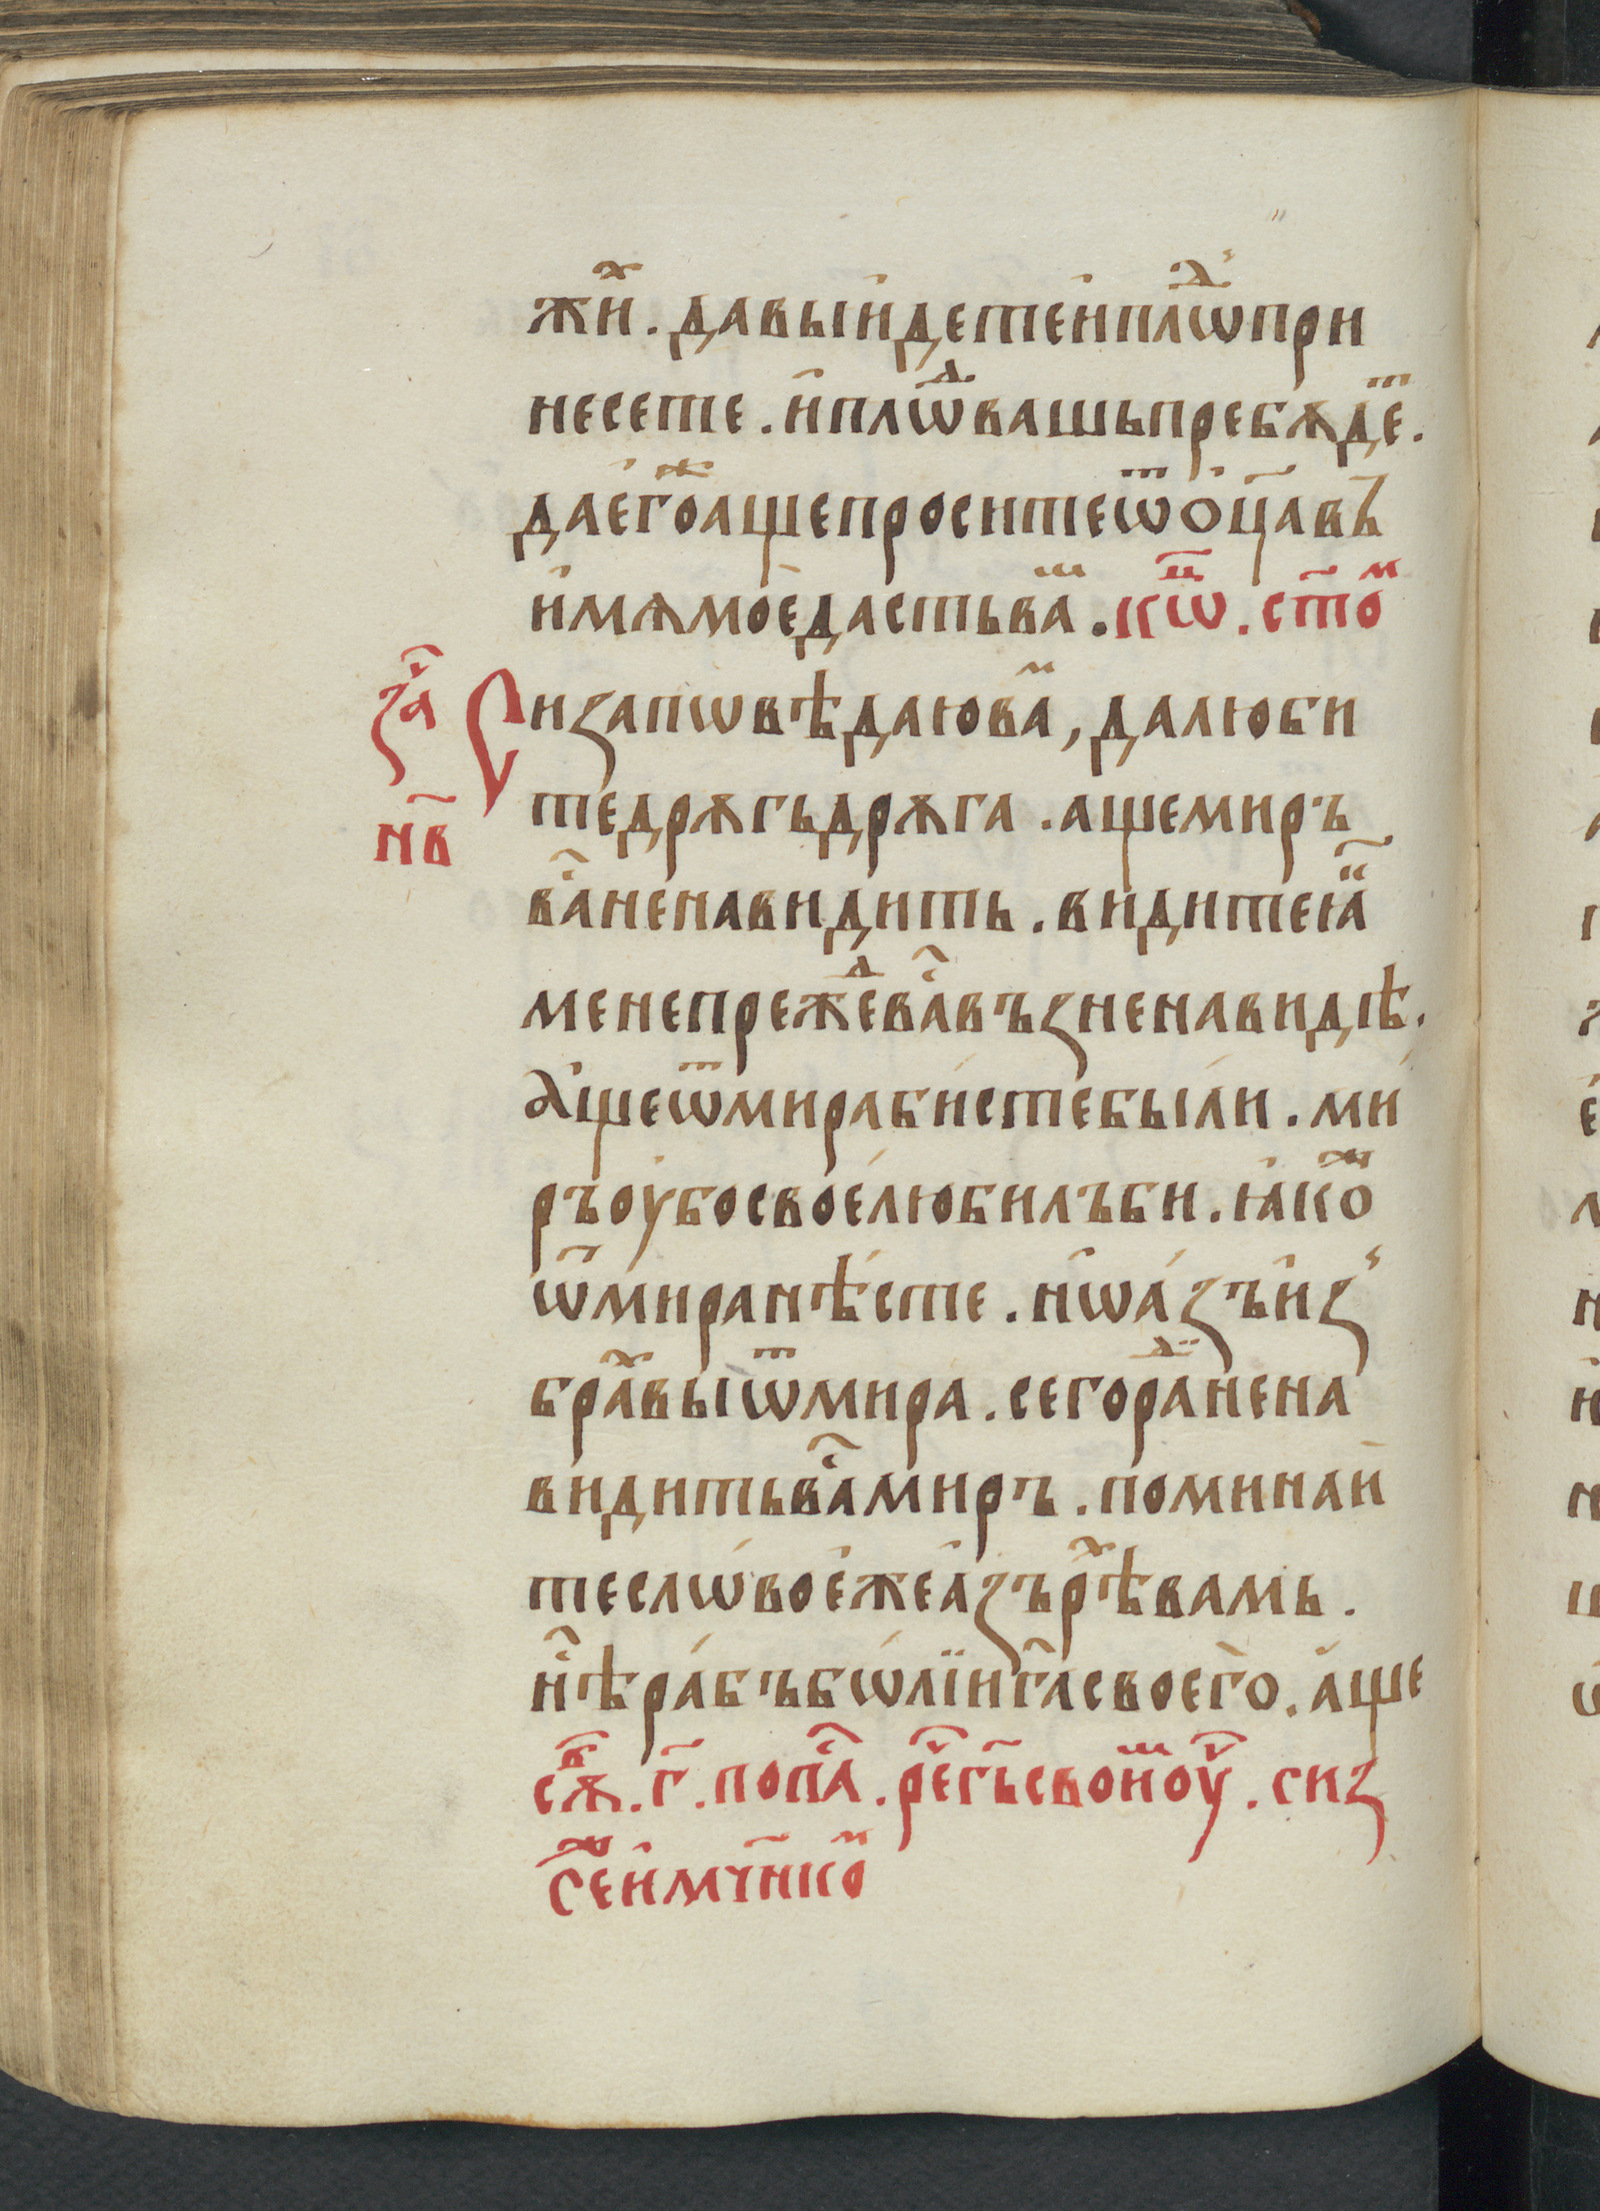 жи҃ⷯ . да вы и҆дете и҆ плѡⷣ при
несете . и҆ плѡⷣ вашь пребѫдеⷮ .
да е҆гоⷤ аще просите ѿ ѻц҃а въ
и҆мѧ мое҆ дасть ваⷨ . кѡⷰ҇ . ст҃оⷨ
заⷱ҇ Си заповѣдаю ваⷨ , да люби
те дрѫгъ дрѫга . аще миръ
нв҃
ваⷭ҇ ненавидить . видите ꙗ҆
мене прежеⷣ ваⷭ҇ възненавидѣ .
Аще ѿ мира бисте были . ми
ръ оубо свое҆ любилъ би . ꙗ҆коⷤ
ѿ мира нѣсте . нѡ а҆зъ и҆з
браⷯ вы ѿ мира . сего раⷣ нена
видить ваⷭ҇ миръ . поминаи
те слѡво е҆же а҆зъ рѣⷯ вамь .
нⷭ҇ѣ рабъ бѡлїи гⷭ҇а своего . аще
сѫⷡ҇ . г҃ . по паⷭ҇ . реⷱ҇ г҃ь своиⷨ оуⷱ҇ . сиз
Сеⷤ и҆ мч҃нкоⷨ